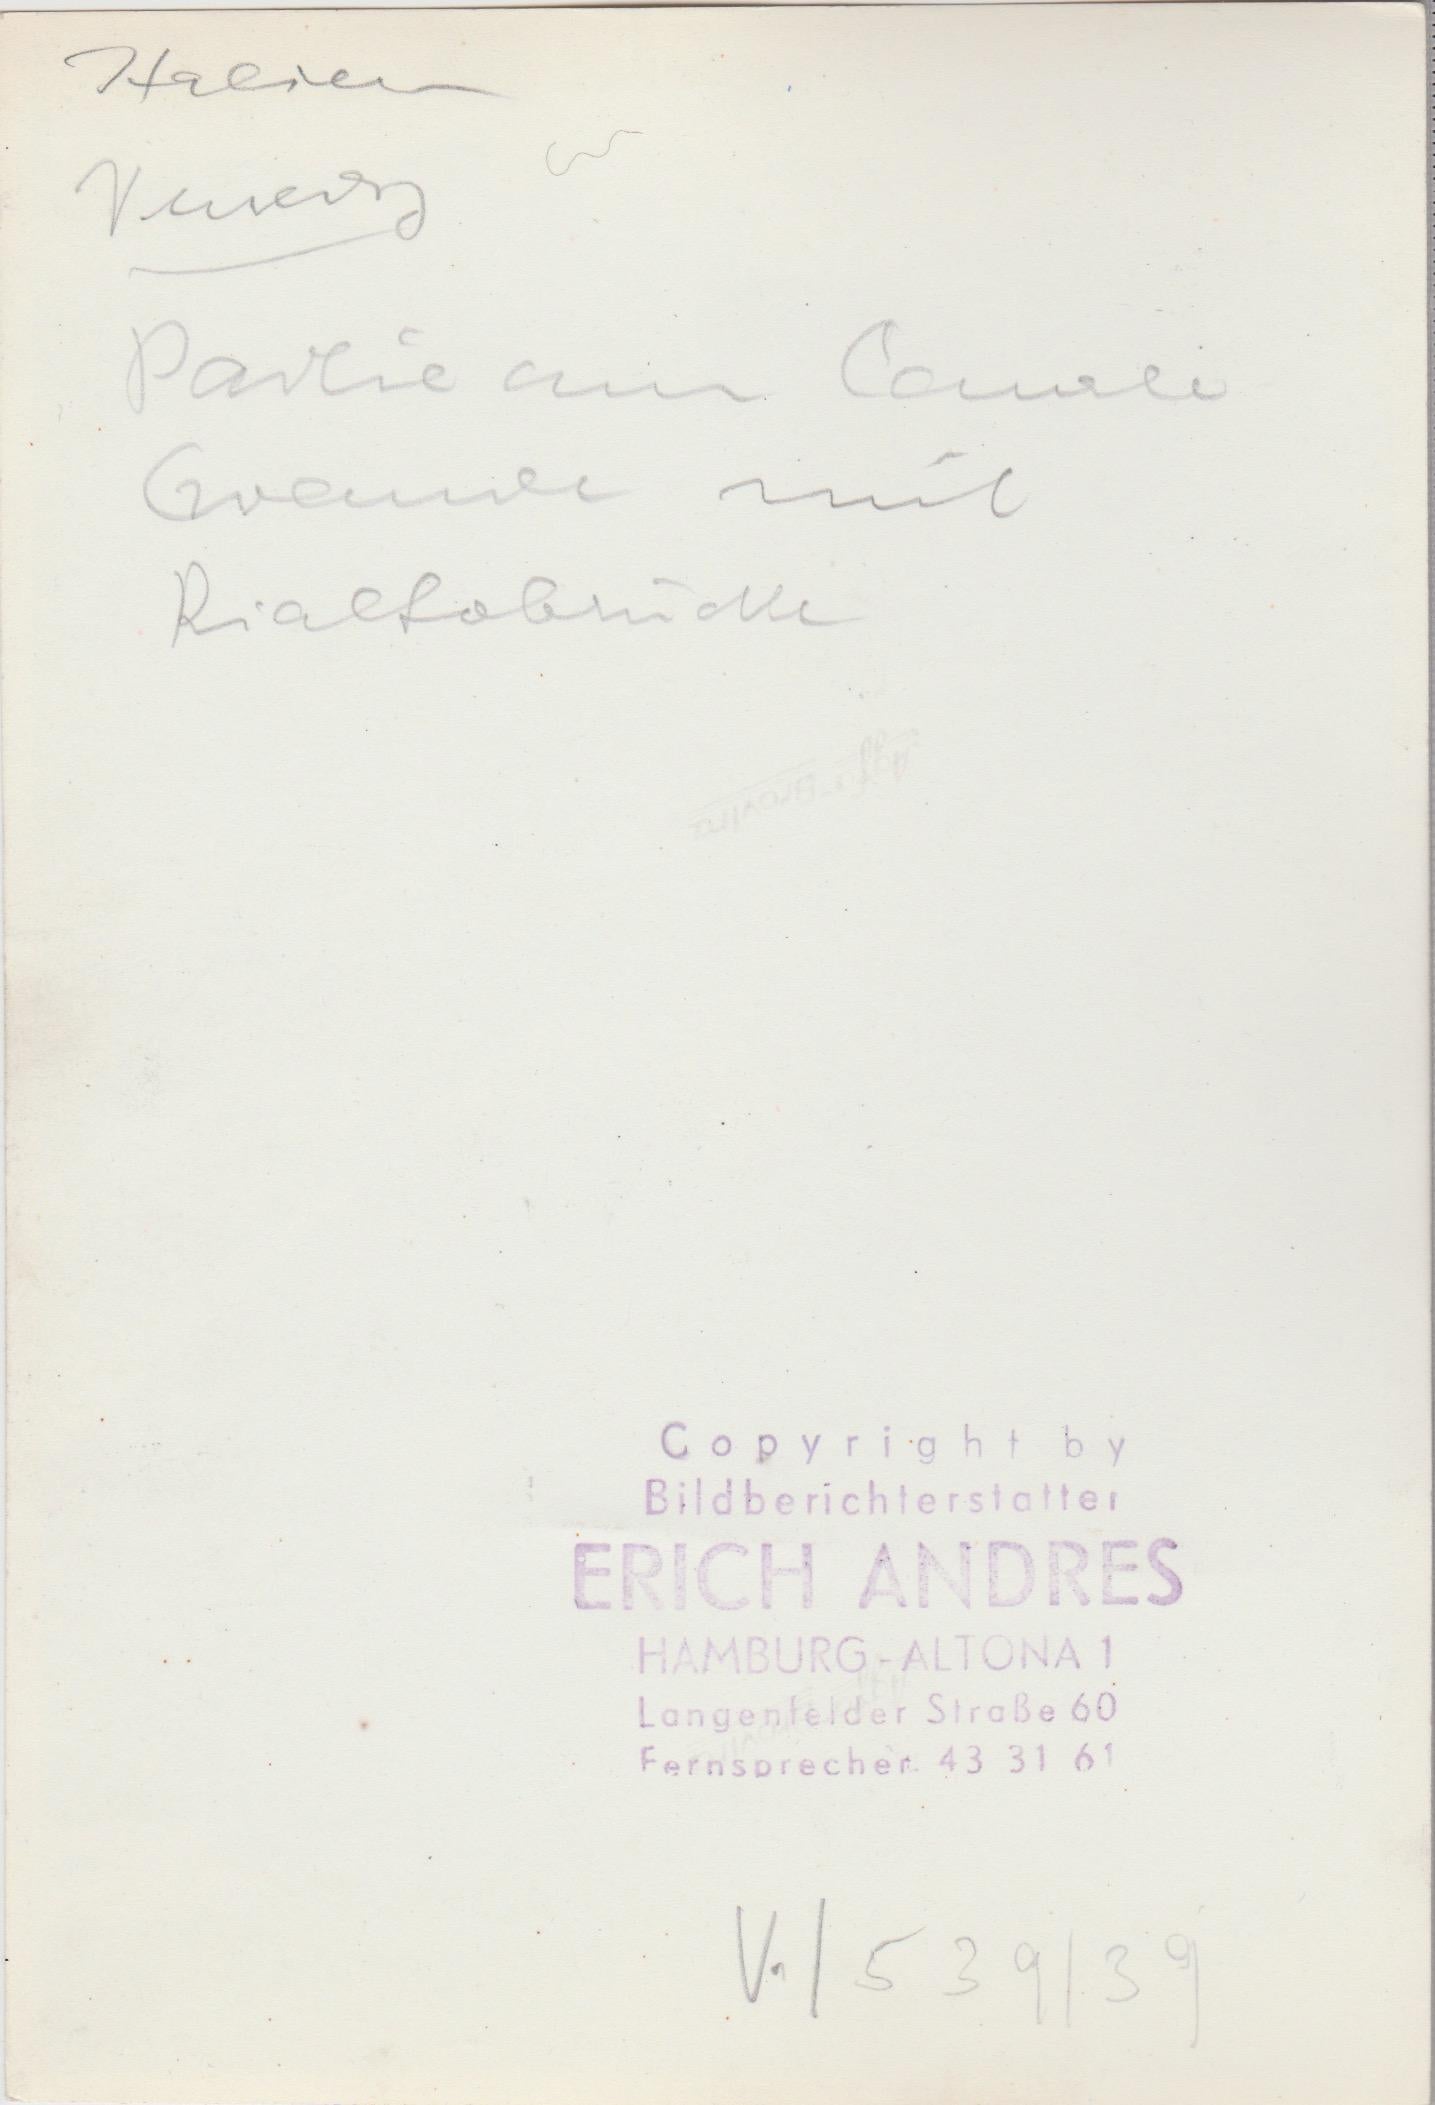 Italien
Venedig
Partie am Canale
Grande mit
Rialtobrücke
Agfa-Brovira
Copyright by
Bildberichterstatter
ERICH ANDRES
HAMBURG-ALTONA 1
Langenfelder Straße 60
Fernsprecher 43 31 61
V./539/39